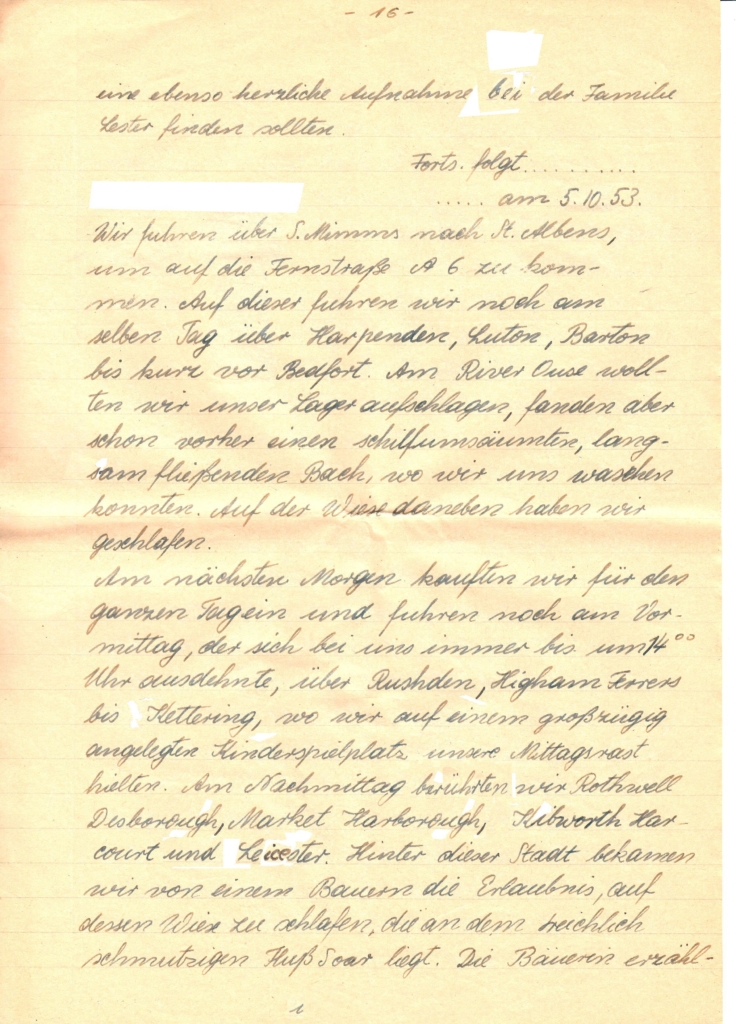 - 16 -
eine ebenso herzliche Aufnahme bei der Familie
Lester finden sollten.
Forts. folgt...........
..... am 5.10.53.
Wir fuhren über S. Mimms nach St. Albens,
um auf die Fernstraße A 6 zu kom-
men. Auf dieser fuhren wir noch am
selben Tag über Harpenden, Luton, Barton
bis kurz vor Bedfort. Am River Ouse woll-
ten wir unser Lager aufschlagen, fanden aber
schon vorher einen schilfumsäumten, lang-
sam fließenden Bach, wo wir uns waschen
konnten. Auf der Wiese daneben haben wir
geschlafen.
Am nächsten Morgen kauften wir für den
ganzen Tag ein und fuhren noch am Vor-
mittag, der sich bei uns immer bis um 14°°
Uhr ausdehnte, über Rushden, Higham Ferrers
bis Kettering, wo wir auf einem großzügig
angelegten Kinderspielplatz unsere Mittagsrast
hielten. Am Nachmittag berührten wir Rothwell
Desborough, Market Harborough, Kibworth Har-
court und Leicester. Hinter dieser Stadt bekamen
wir von einem Bauern die Erlaubnis, auf
dessen Wiese zu schlafen, die an dem reichlich
schmutzigen Fluß Soar liegt. Die Bäuerin erzähl-